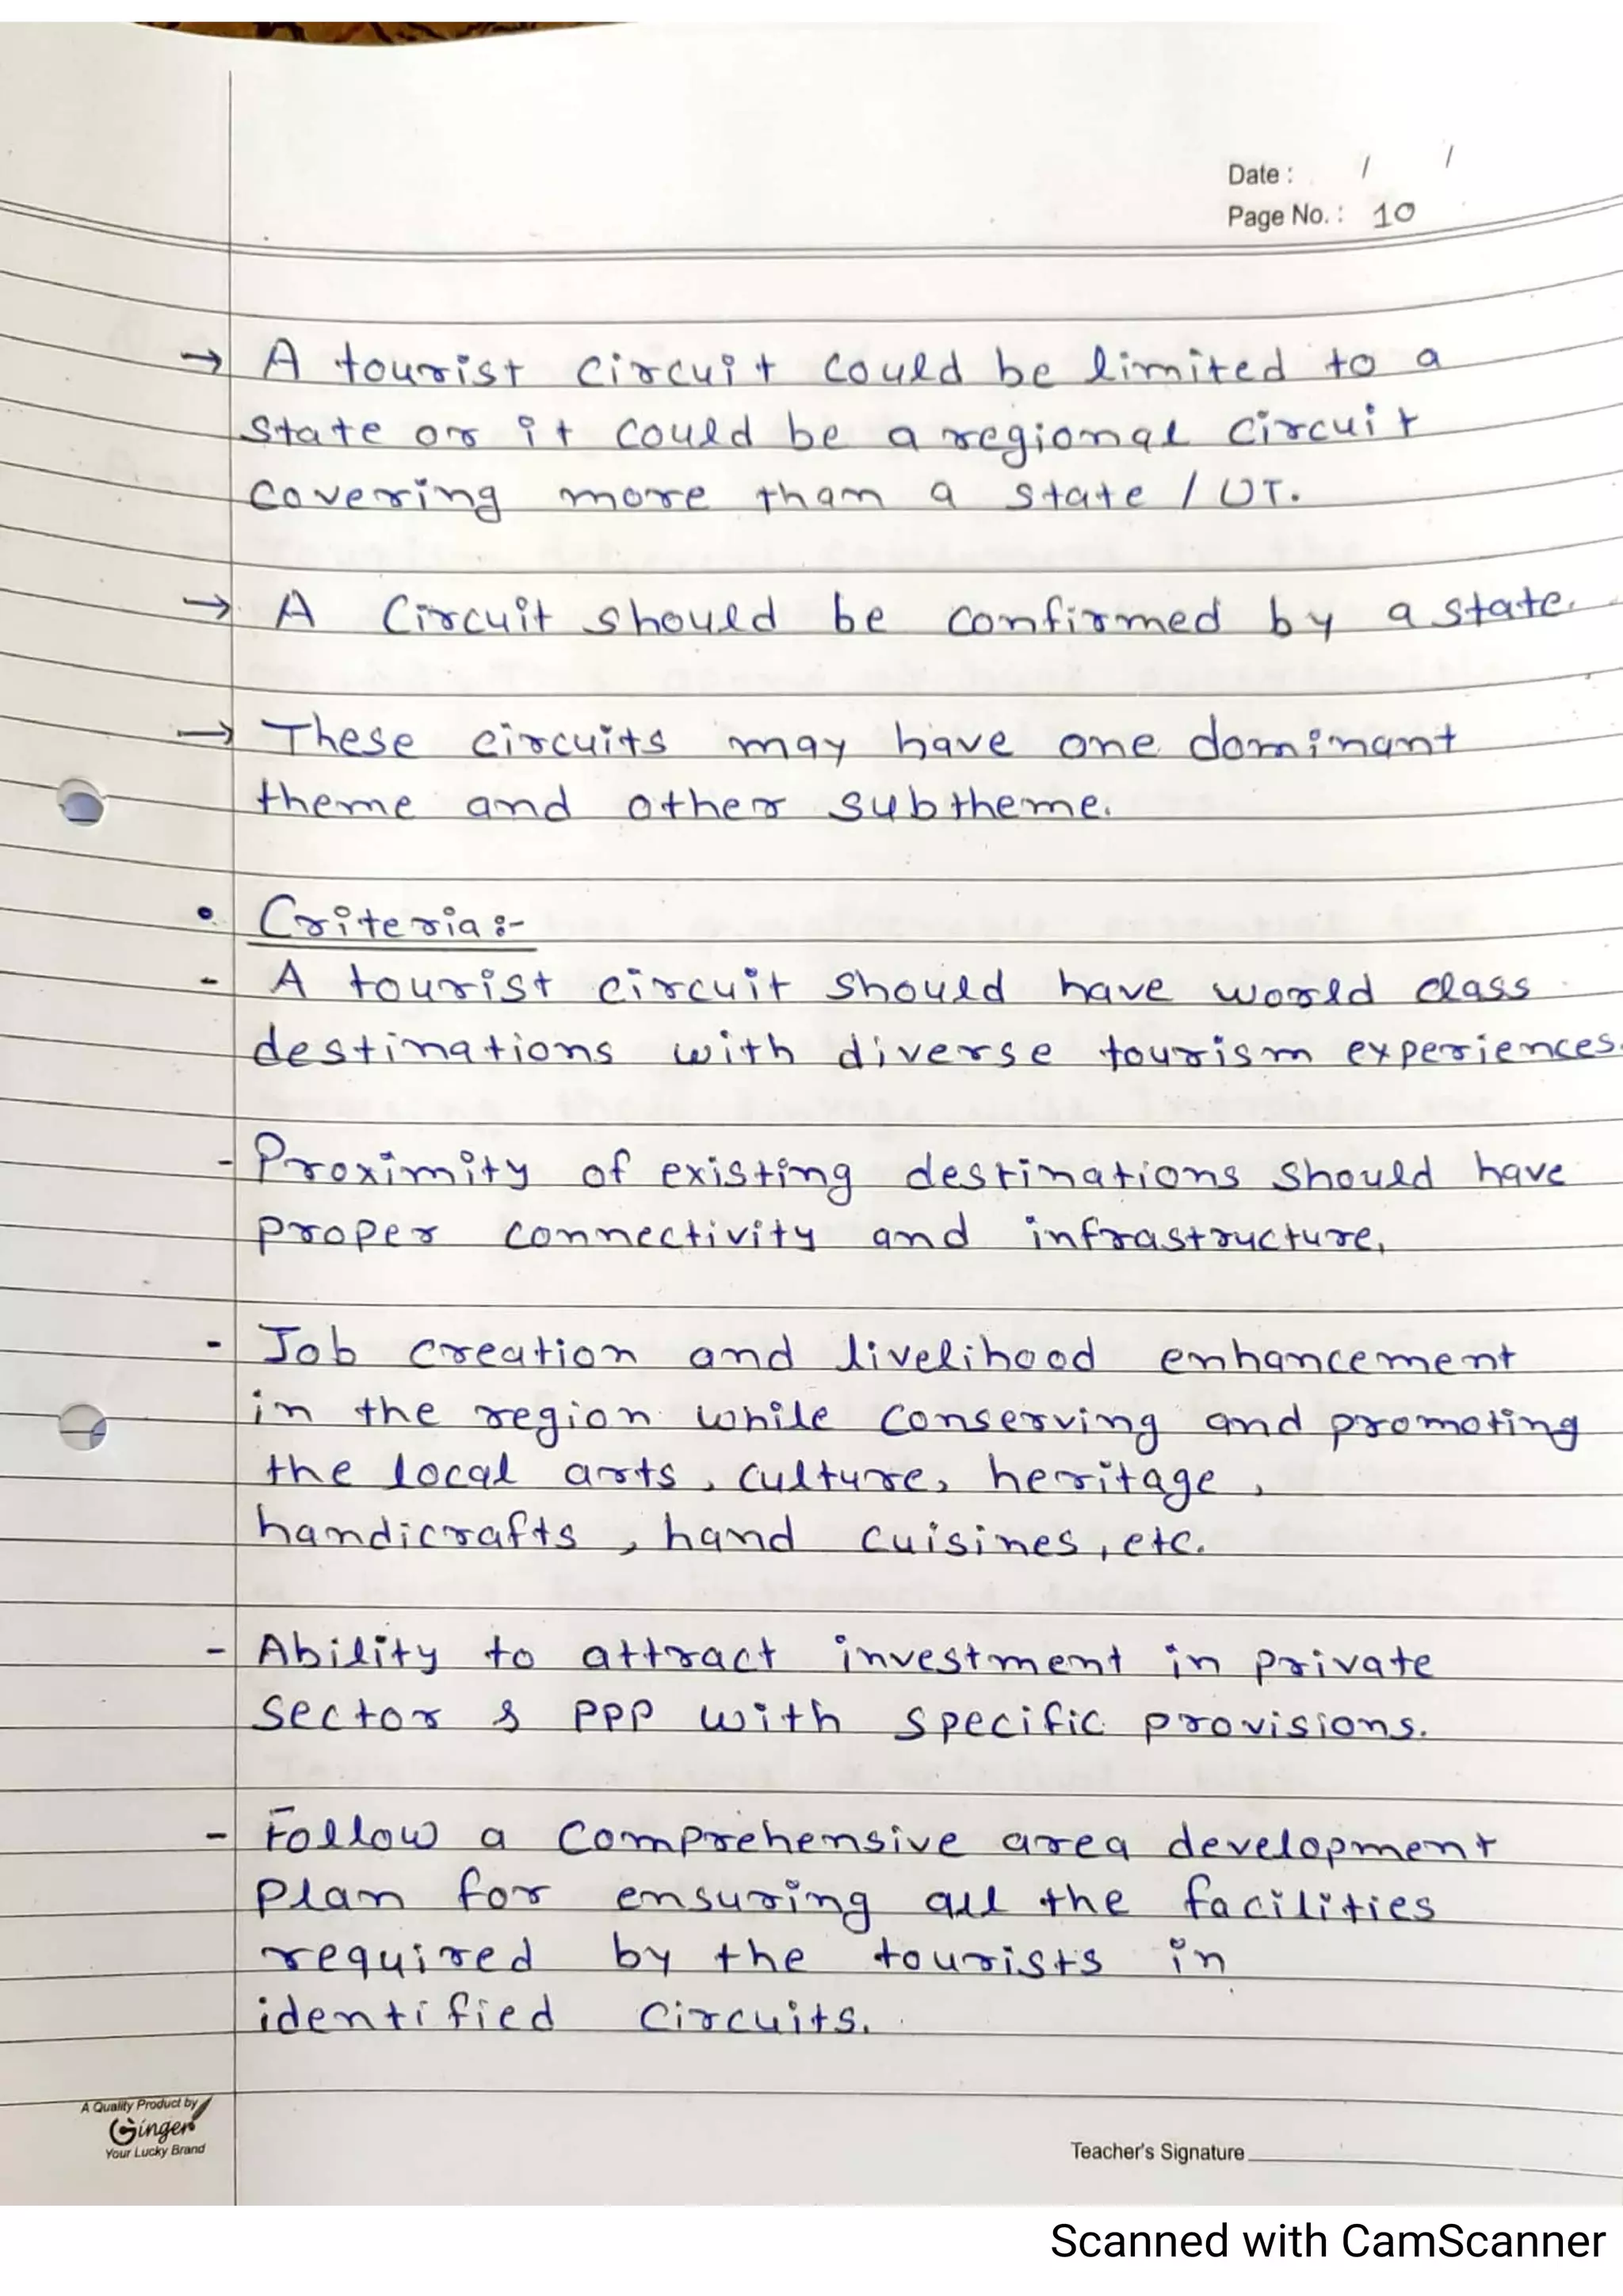 Date : / /
Page No. : 10
→ A tourist circuit could be limited to a
state or it could be a regional circuit
covering more than a state / UT.
→ A circuit should be confirmed by a state.
→ These circuits may have one dominant
theme and other subtheme.
• Criteria :-
- A tourist circuit should have world class
destinations with diverse tourism experiences.
- Proximity of existing destinations should have
proper connectivity and infrastructure.
- Job creation and livelihood enhancement
in the region while conserving and promoting
the local arts, culture, heritage,
handicrafts, hand cuisines, etc.
- Ability to attract investment in private
sector & PPP with specific provisions.
- Follow a comprehensive area development
plan for ensuring all the facilities
required by the tourists in
identified circuits.
A Quality Product by
Ginger
Your Lucky Brand
Teacher's Signature
Scanned with CamScanner